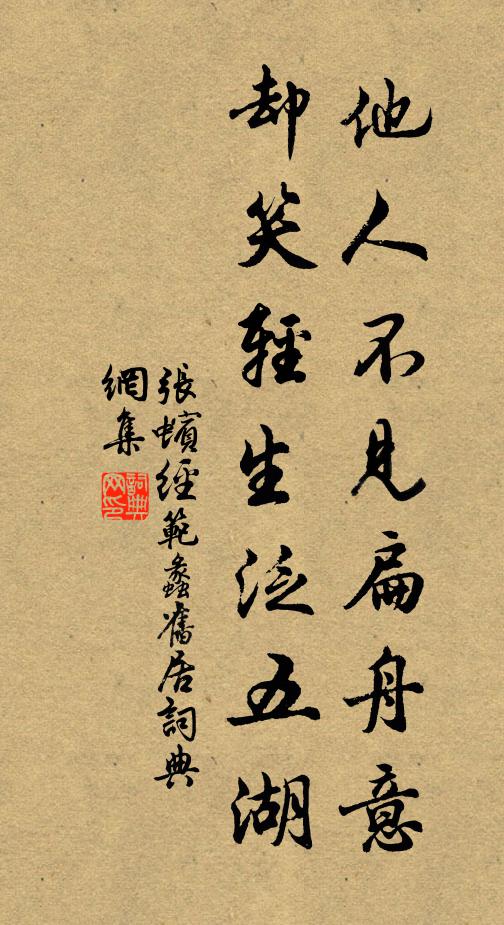 他人不見扁舟意
却笑輕生泛五湖
張蠙經範蠡舊居詞典
網集
詞典
网印